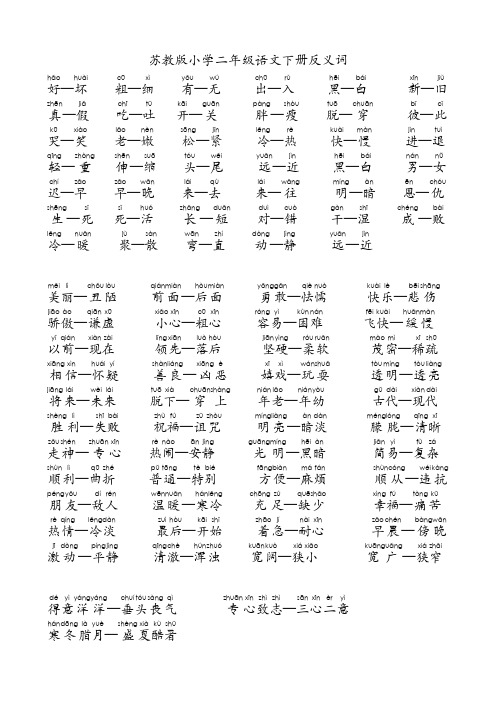 苏教版小学二年级语文下册反义词
hǎo huài cū xì yǒu wú chū rù hēi bái xīn jiù
好—坏 粗—细 有—无 出—入 黑—白 新—旧
zhēn jiǎ chī tǔ kāi guān pàng shòu tuō chuān bǐ cǐ
真—假 吃—吐 开—关 胖—瘦 脱—穿 彼—此
kū xiào lǎo nèn sōng jǐn lěng rè kuài màn jìn tuì
哭—笑 老—嫩 松—紧 冷—热 快—慢 进—退
qīng zhòng shēn suō tóu wěi yuǎn jìn hēi bái nán nǚ
轻—重 伸—缩 头—尾 远—近 黑—白 男—女
chí zǎo zǎo wǎn lái qù lái wǎng míng àn ēn chóu
迟—早 早—晚 来—去 来—往 明—暗 恩—仇
shēng sǐ sǐ huó zhǎng duǎn duì cuò gàn shī chéng bài
生—死 死—活 长—短 对—错 干—湿 成—败
lěng nuǎn jù sàn wān zhí dòng jìng yuǎn jìn
冷—暖 聚—散 弯—直 动—静 远—近
měi lì chǒu lòu qiánmiàn hòumiàn yǒnggǎn qiè nuò kuài lè bēi shāng
美丽—丑陋 前面—后面 勇敢—怯懦 快乐—悲伤
jiāo ào qiān xū xiǎo xīn cū xīn róng yì kùnnán fēi kuài huǎnmàn
骄傲—谦虚 小心—粗心 容易—困难 飞快—缓慢
yǐ qián xiàn zài lǐngxiān luò hòu jiānyìng róu ruǎn mào mì xī shū
以前—现在 领先—落后 坚硬—柔软 茂密—稀疏
xiāng xìn huái yí shànliáng xiōng è xī xì wánshuǎ tòu míng tòu liàng
相信—怀疑 善良—凶恶 嬉戏—玩耍 透明—透亮
jiāng lái wèi lái tuō xià chuānshàng nián lǎo niányòu gǔ dài xiàn dài
将来—未来 脱下—穿上 年老—年幼 古代—现代
shèng lì shī bài zhù fú zǔ zhòu míngliàng àn dàn ménglóng qīng xī
胜利—失败 祝福—诅咒 明亮—暗淡 朦胧—清晰
zǒu shén zhuān xīn rè nào ān jìng guāngmíng hēi àn jiǎn yì fù zá
走神—专心 热闹—安静 光明—黑暗 简易—复杂
shùn lì qū zhé pǔ tōng tè bié fāngbiàn má fán shùncóng wéi kàng
顺利—曲折 普通—特别 方便—麻烦 顺从—违抗
péngyǒu dí rén wēnnuǎn hánlěng chōng zú quēshǎo xìng fú tòng kǔ
朋友—敌人 温暖—寒冷 充足—缺少 幸福—痛苦
rè qíng lěngdàn zuì hòu kāi shǐ zháo jí nài xīn zǎo chén bàngwǎn
热情—冷淡 最后—开始 着急—耐心 早晨—傍晚
jī dòng píngjìng qīngchè húnzhuó kuānkuò xiá xiǎo kuānguǎng xiá zhǎi
激动—平静 清澈—浑浊 宽阔—狭小 宽广—狭窄
dé yì yángyáng chuí tóu sàng qì zhuān xīn zhì zhì sān xīn èr yì
得意洋洋—垂头丧气 专心致志—三心二意
hándōng là yuè shèng xià kù shǔ
寒冬腊月—盛夏酷暑